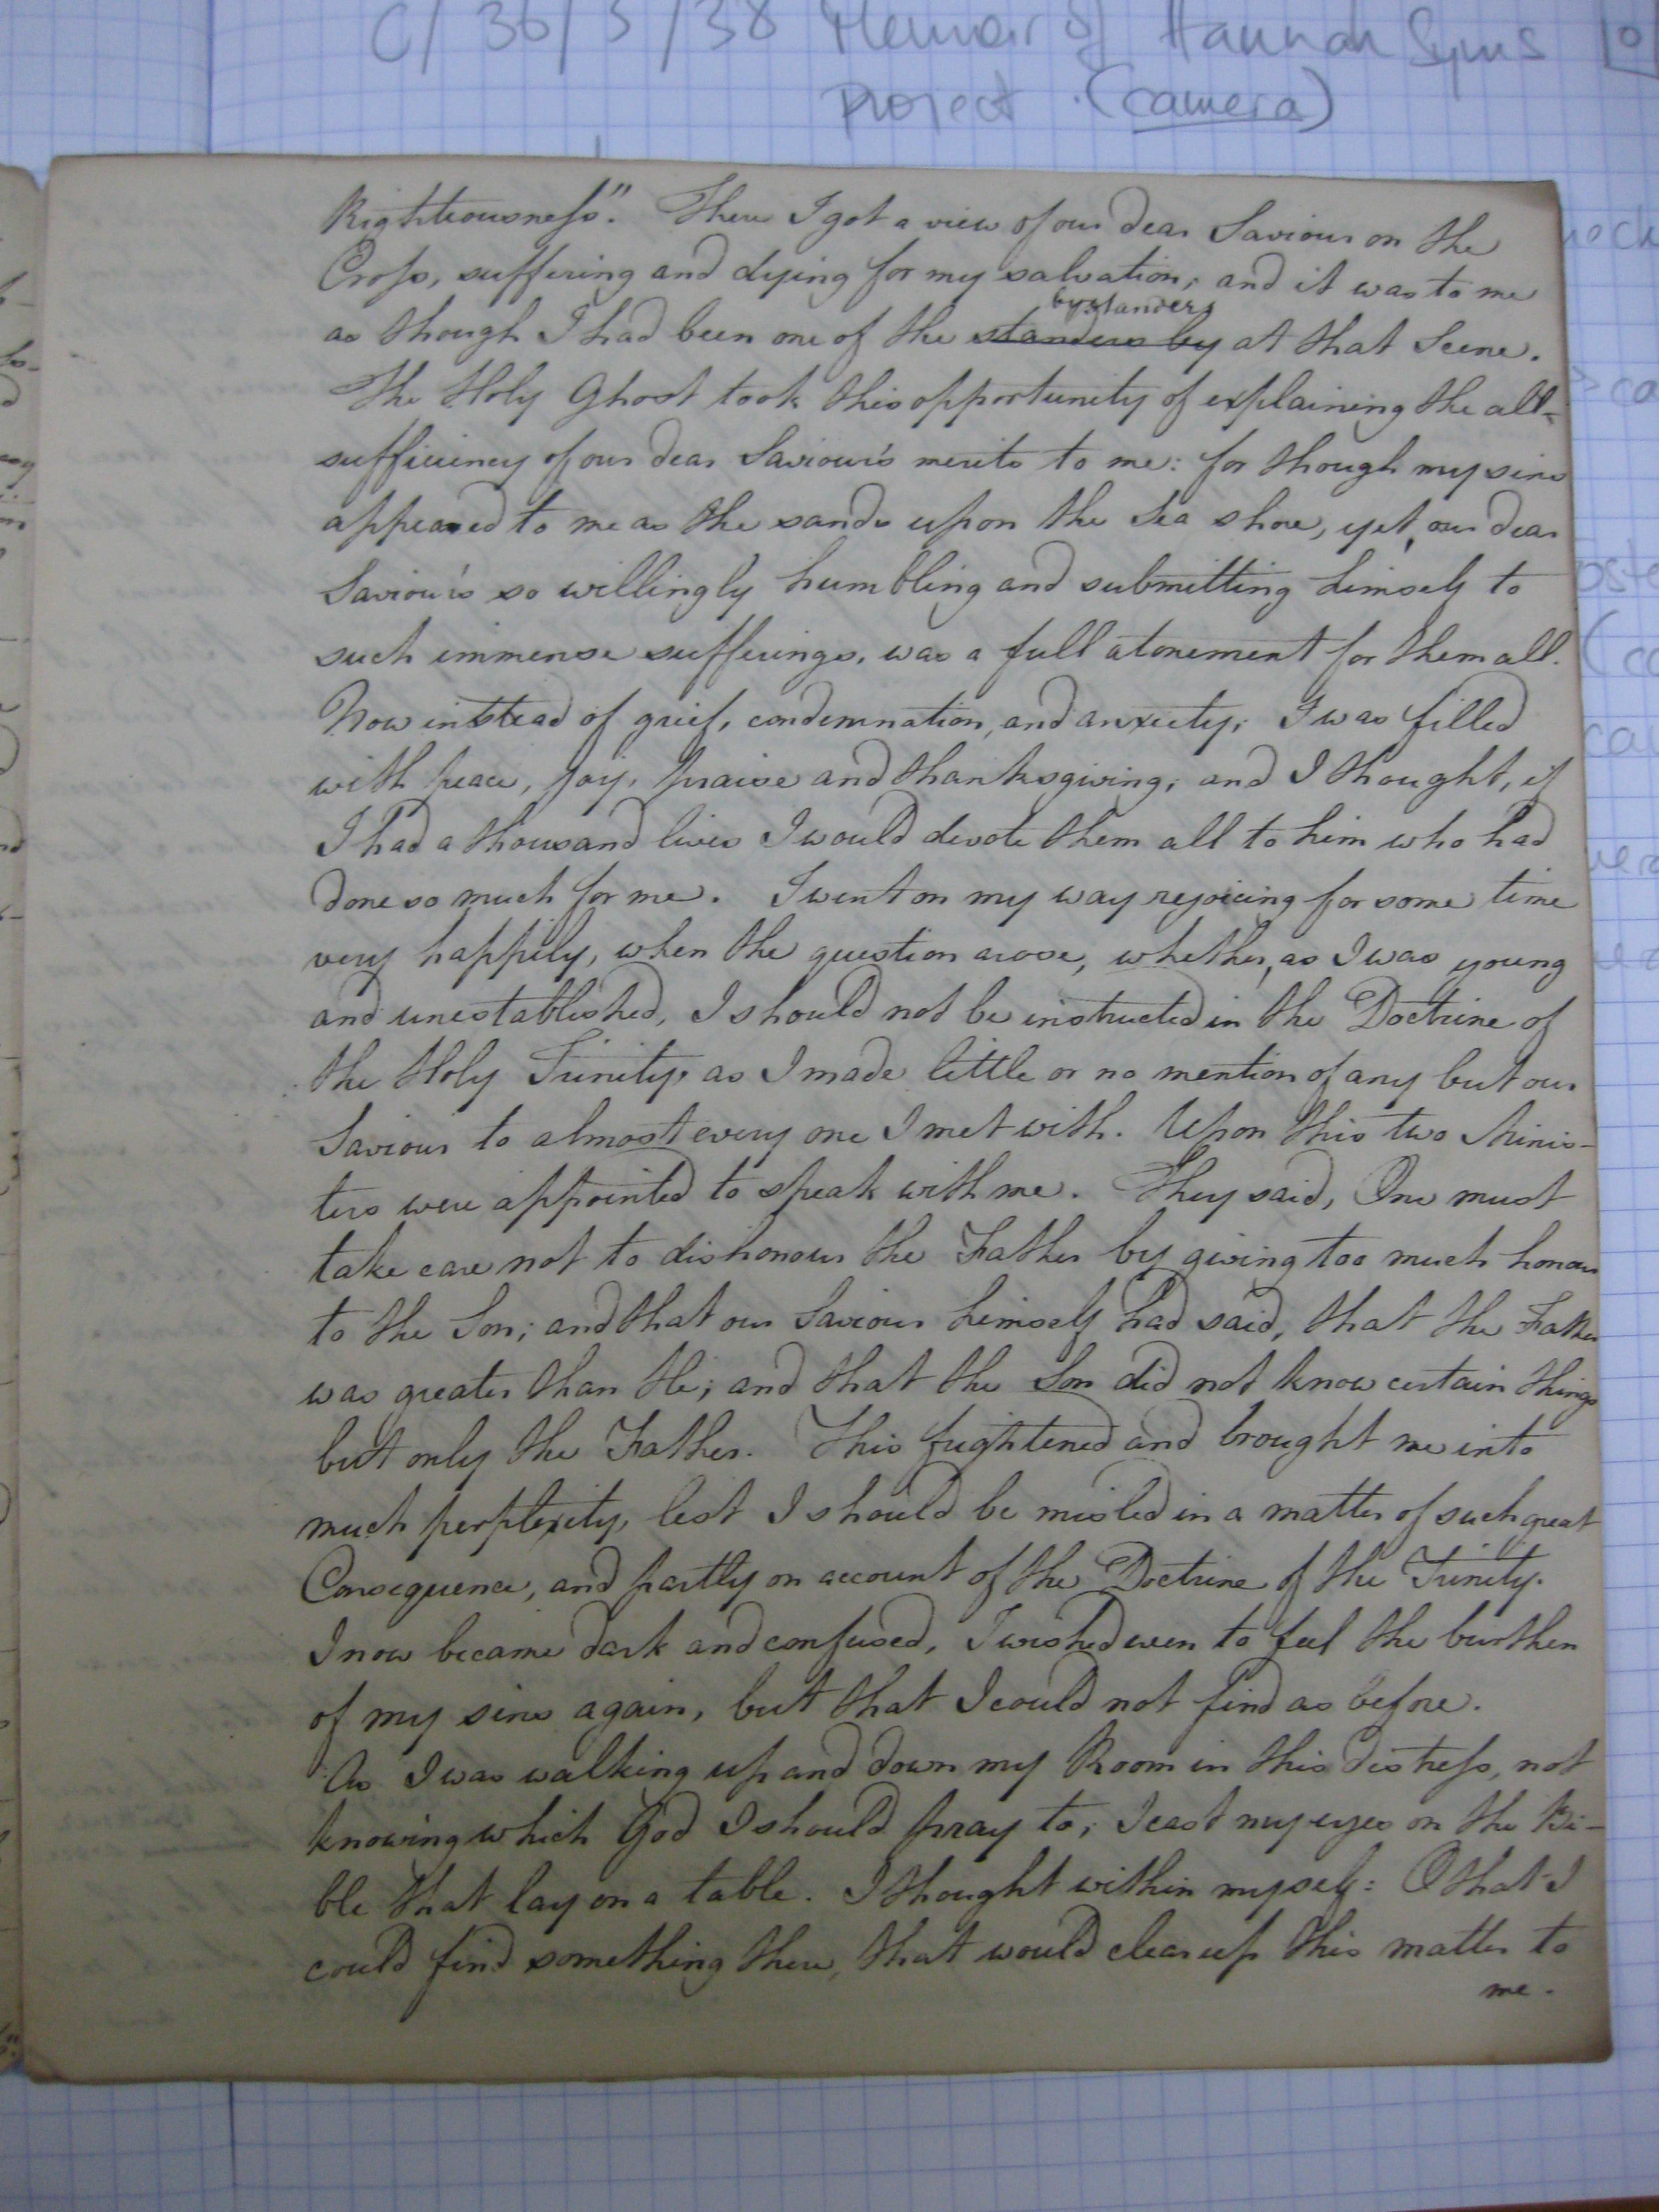 C/36/5/38 Memoir of Hannah Syms
Project (camera)
Righteousness". There I got a view of our dear Saviour on the
Cross, suffering and dying for my salvation; and it was to me
bystanders
as though I had been one of the standers by at that Scene.
The Holy Ghost took this opportunity of explaining the all-
sufficiency of our dear Saviour's merits to me: for though my sins
appeared to me as the sands upon the Sea shore, yet, our dear
Saviour's so willingly humbling and submitting himself to
such immense sufferings, was a full atonement for them all.
Now instead of grief, condemnation, and anxiety; I was filled
with peace, joy, praise and thanksgiving; and I thought, if
I had a thousand lives I would devote them all to him who had
done so much for me. I went on my way rejoicing for some time
very happily, when the question arose, whether, as I was young
and unestablished, I should not be instructed in the Doctrine of
the Holy Trinity, as I made little or no mention of any but our
Saviour to almost every one I met with. Upon this two Minis-
ters were appointed to speak with me. They said, One must
take care not to dishonour the Father by giving too much honour
to the Son; and that our Saviour himself had said, that the Father
was greater than He; and that the Son did not know certain things
but only the Father. This frightened and brought me into
much perplexity, lest I should be misled in a matter of such great
Consequence, and partly on account of the Doctrine of the Trinity.
I now became dark and confused, I wished even to feel the burthen
of my sins again, but that I could not find as before.
As I was walking up and down my Room in this distress, not
knowing which God I should pray to; I cast my eyes on the Bi-
ble that lay on a table. I thought within myself: O that I
could find something there, that would clear up this matter to
me.